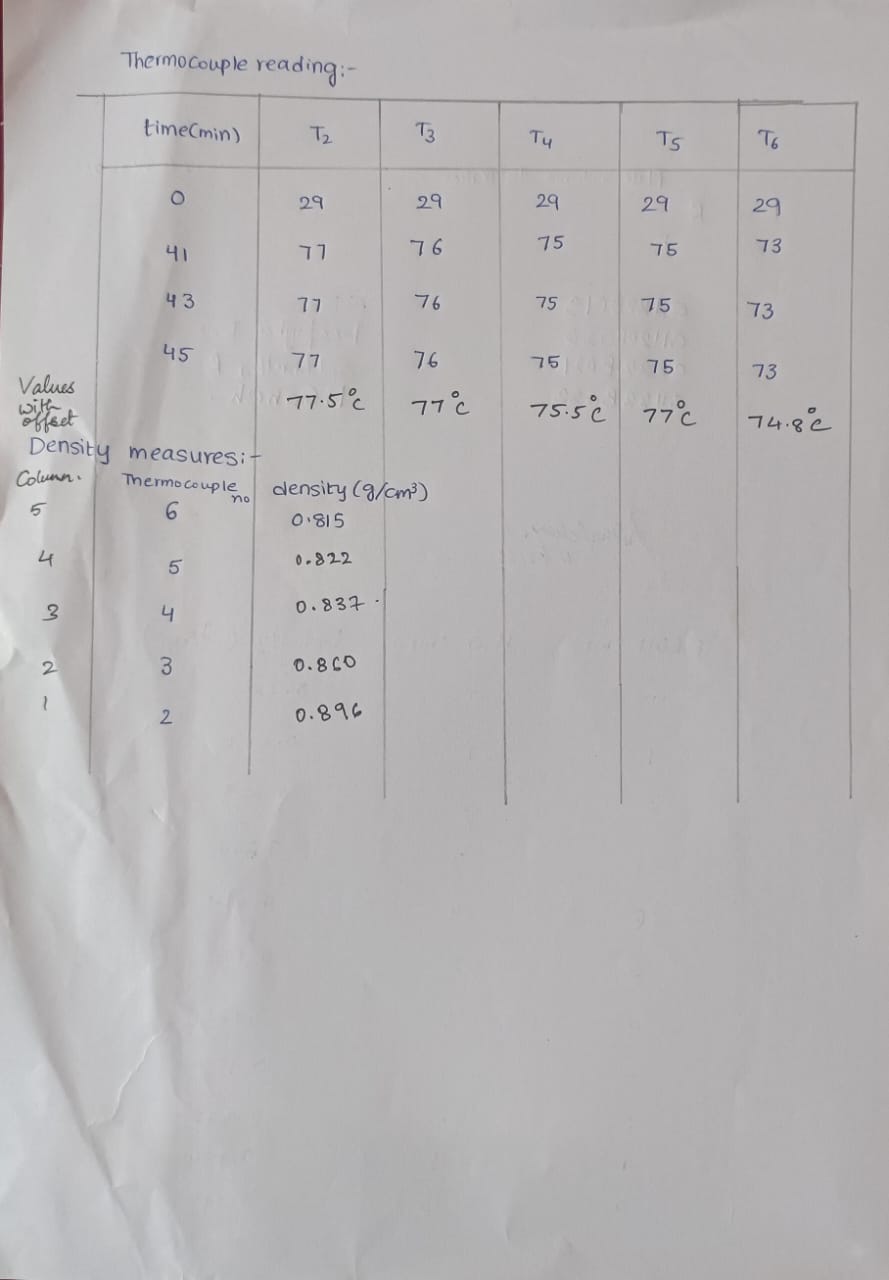 Thermocouple reading:-
time(min) T2 T3 T4 T5 T6
0 29 29 29 29 29
41 77 76 75 75 73
43 77 76 75 75 73
45 77 76 75 75 73
Values with offset 77.5°C 77°C 75.5°C 77°C 74.8°C
Density measures:-
Column. Thermocouple no density (g/cm³)
5 6 0.815
4 5 0.822
3 4 0.837
2 3 0.860
1 2 0.896